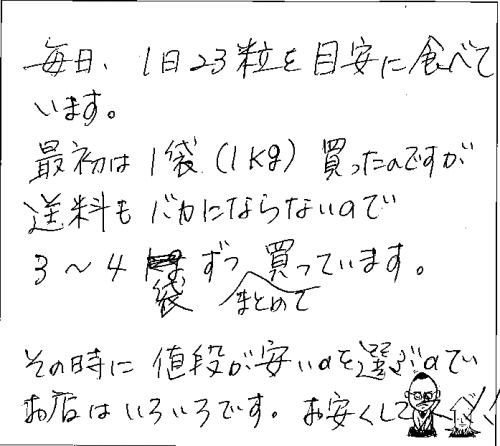 毎日、1日23粒を目安に食べて
います。
最初は1袋(1kg)買ったのですが
送料もバカにならないので
3~4袋ずつまとめて買っています。
その時に値段が安いのを選ぶのでい
お店はいろいろです。お安くして